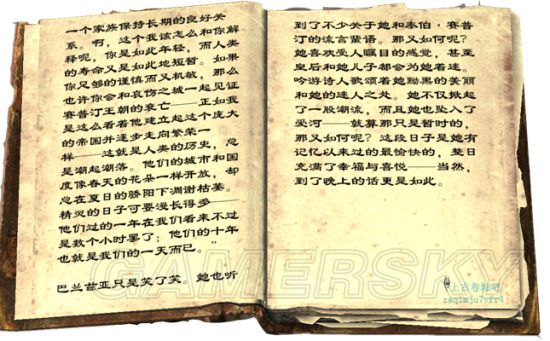 一个家族保持长期的良好关
系。啊，这个我该怎么和你解
释呢，你是如此年轻，而人类
的寿命又是如此地短暂。如果
你只够的谨慎而又机敏，那么
也许你会和哀伤之城一起见证
赛普汀王朝的衰亡——正如我
是这么看着他建立起这个庞大
的帝国并逐步走向繁荣一
样——这就是人类的历史，总
是潮起潮落。他们的城市和国
度像春天的花朵一样开放，却
总在夏日的骄阳下凋谢枯萎。
精灵的日子可要漫长得多——
他们过的一年在我们看来不过
是数个小时罢了；他们的十年
也就是我们的一天而已。”
巴兰兹亚只是笑了笑。她也听
到了不少关于她和泰伯·赛普
汀的流言蜚语。那又如何呢？
她喜欢受人瞩目的感觉，甚至
皇后和她儿子都会为她着迷。
吟游诗人歌颂着她黝黑的美丽
和她的迷人之处。她不仅掀起
了一股潮流，而且她也坠入了
爱河——就算那只是暂时的，
那又如何呢？这段日子是她有
记忆以来过的最愉快的，整日
充满了幸福与喜悦——当然，
到了晚上的话更是如此。
GAMERSKY
上古卷轴吧
zaq1mju7vfr4